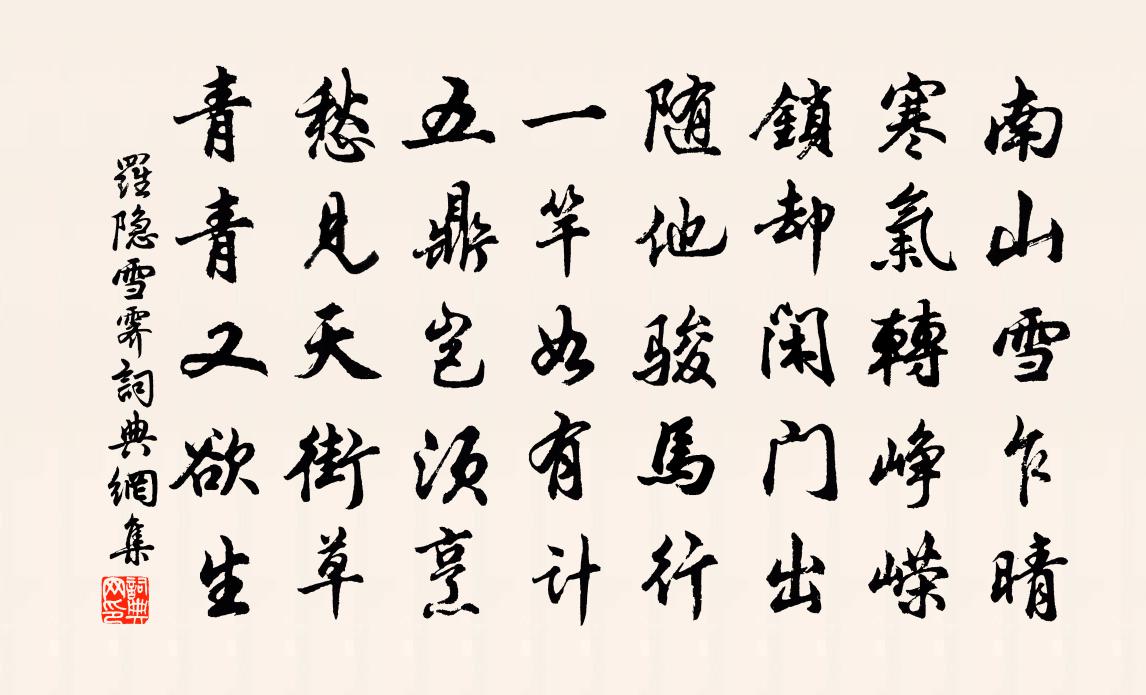 南山雪乍晴
寒氣轉峥嵘
鎖却闲门出
随他骏馬行
一竿如有计
五鼎岂须烹
愁見天街草
青青又欲生
羅隐雪霁詞典網集
詞典网印